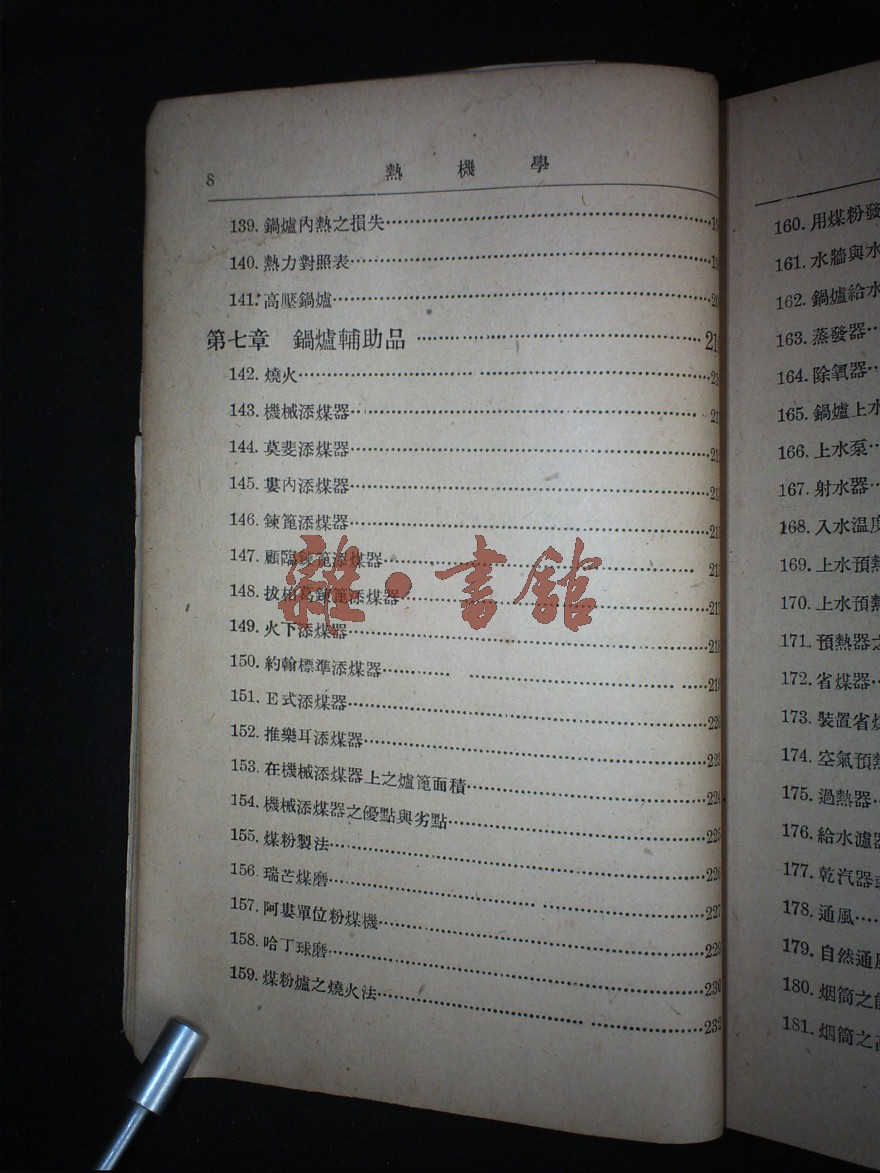 8 熱機學
139. 鍋爐內熱之損失
140. 熱力對照表
141. 高壓鍋爐
第七章 鍋爐輔助品
142. 燒火
143. 機械添煤器
144. 莫斐添煤器
145. 婁內添煤器
146. 鍊篦添煤器
147. 顧臨鍊篦添煤器
148. 拔柏葛鍊篦添煤器 217
149. 火下添煤器 218
150. 約翰標準添煤器
151. E式添煤器 220
152. 推樂耳添煤器
153. 在機械添煤器上之爐篦面積 224
154. 機械添煤器之優點與劣點 225
155. 煤粉製法 226
156. 瑞芒煤磨 227
157. 阿婁單位粉煤機 229
158. 哈丁球磨 230
159. 煤粉爐之燒火法 232
160. 用煤粉發
161. 水牆與水
162. 鍋爐給水
163. 蒸發器
164. 除氧器
165. 鍋爐上水
166. 上水泵
167. 射水器
168. 入水溫度
169. 上水預熱
170. 上水預熱
171. 預熱器之
172. 省煤器
173. 裝置省煤
174. 空氣預熱
175. 過熱器
176. 給水濾器
177. 乾汽器
178. 通風
179. 自然通風
180. 烟筒之
181. 烟筒之高
雜·書館